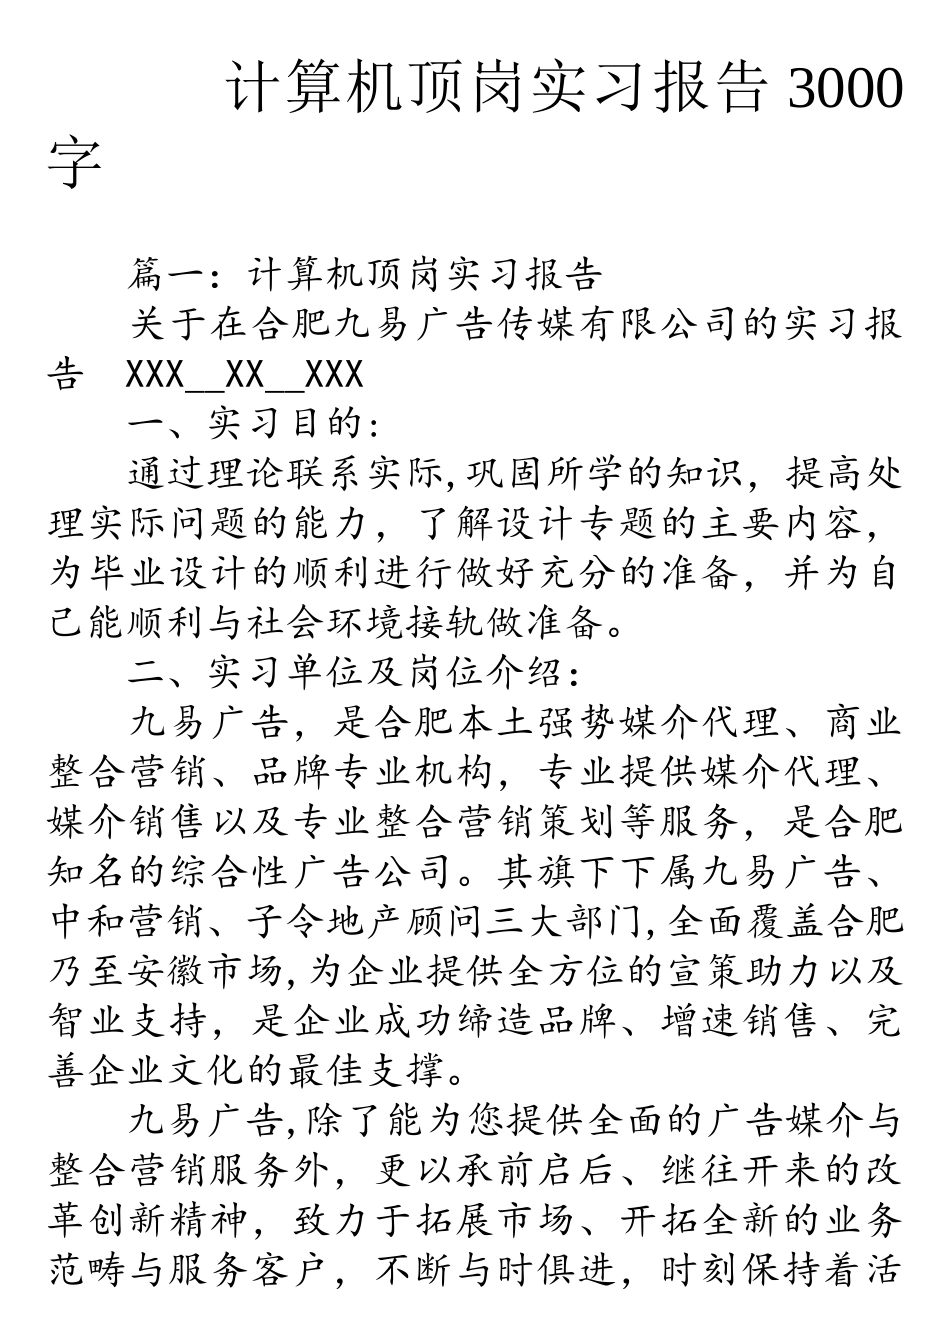 计算机顶岗实习报告 3000
字
篇一：计算机顶岗实习报告
关于在合肥九易广告传媒有限公司的实习报
告　XXX__XX__XXX
一、实习目的:
通过理论联系实际,巩固所学的知识，提高处
理实际问题的能力，了解设计专题的主要内容，
为毕业设计的顺利进行做好充分的准备，并为自
己能顺利与社会环境接轨做准备。
二、实习单位及岗位介绍：
九易广告，是合肥本土强势媒介代理、商业
整合营销、品牌专业机构，专业提供媒介代理、
媒介销售以及专业整合营销策划等服务，是合肥
知名的综合性广告公司。其旗下下属九易广告、
中和营销、子令地产顾问三大部门,全面覆盖合肥
乃至安徽市场,为企业提供全方位的宣策助力以及
智业支持，是企业成功缔造品牌、增速销售、完
善企业文化的最佳支撑。
九易广告,除了能为您提供全面的广告媒介与
整合营销服务外，更以承前启后、继往开来的改
革创新精神，致力于拓展市场、开拓全新的业务
范畴与服务客户，不断与时俱进，时刻保持着活